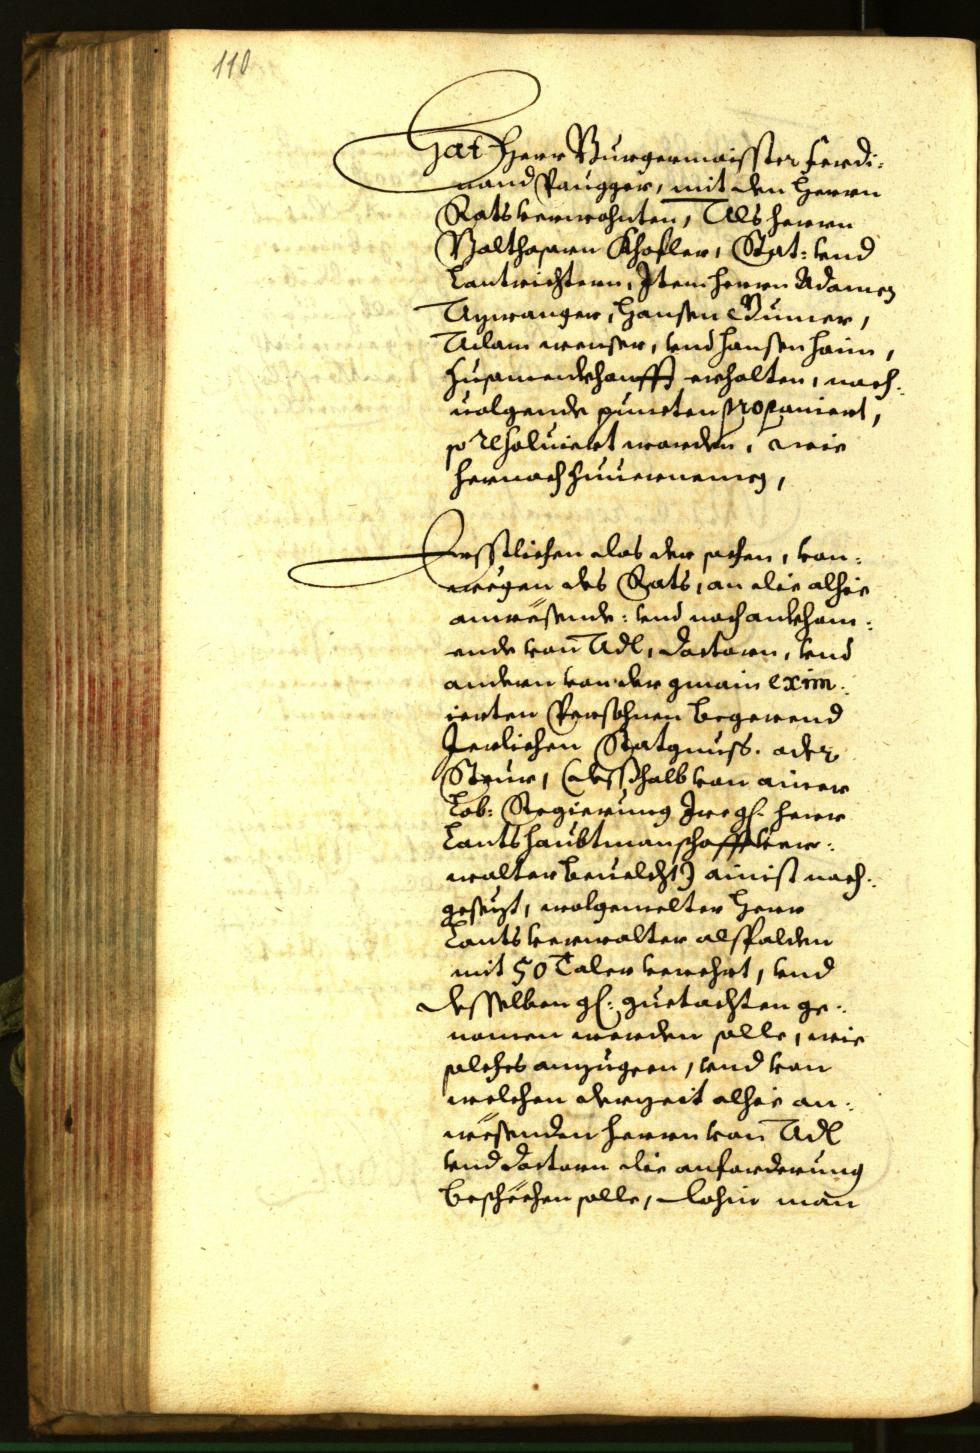 110
Hat Herr Burgermaisster Ferdi:
nand Paugger, mit den Herrn
Ratsverwohnten, Als herrn
Balthasarn Khofler, Stat: vnd
Lantrichtern, Item herrn Adamen
Aywanger, Hansen Gumer,
Adam wenser, vnd hansen haim,
Zusamenkhonfft erhalten, nach:
uolgende puncten proponiert,
so resoluiert worden, wie
hernach Zuuernemen,
Ersstlichen das der sachen, von:
wegen des Rats, an die alhie
anwesende: vnd nochankhom:
ende von Adl, doctorn, vnd
andern von der gmain exim:
ierten Persohnen begerend
Jerlichen Statgnuss. oder
Steur, (dessthalb von ainer
Lob: Regierung Ire gl. herr
Lantshaubtmanschafftver:
walter beuelcht) ainist nach:
gesetzt, wolgemelter herr
Lantsverwalter alspalden
mit 50 Taler verehrt, vnd
desselben gl: guetachten ge:
nomen werden solle, wie
solches anzugeen, vnd von
welchen derzeit alhie an:
wesenden herrn von Adl
vnd doctorn die anforderung
beschechen solle, dohin man